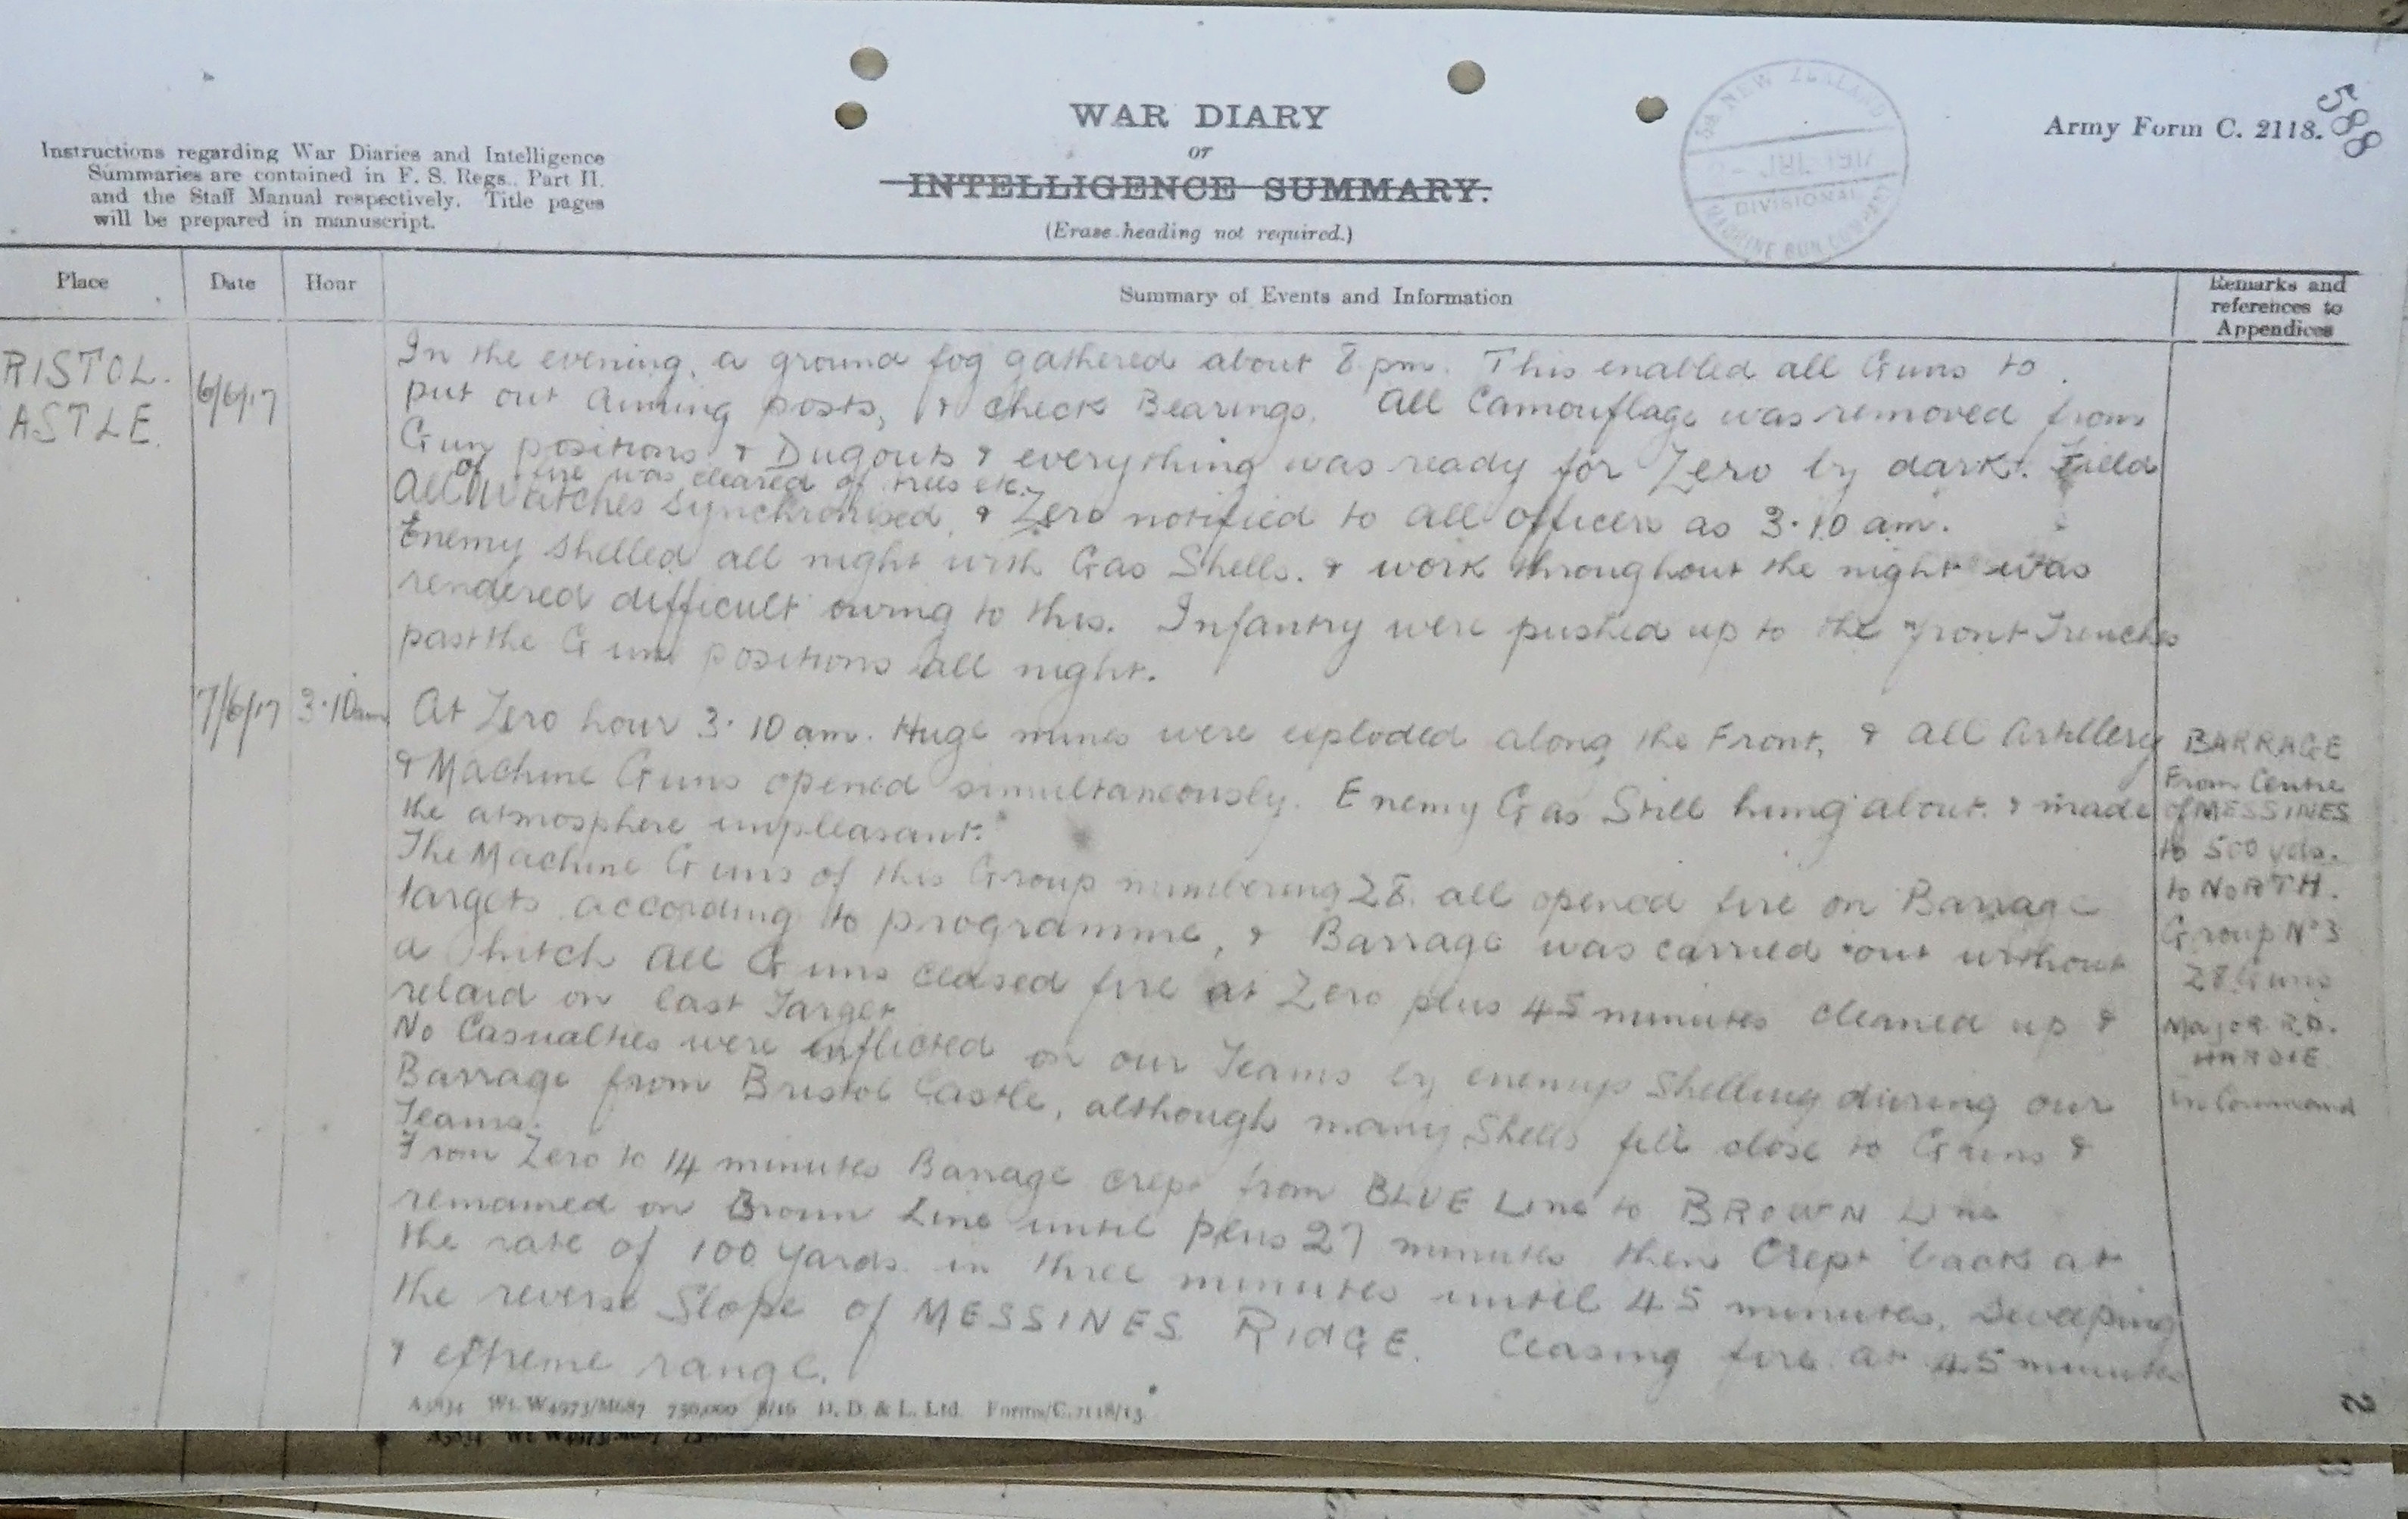 588
Army Form C. 2118.
WAR DIARY
or
INTELLIGENCE SUMMARY.
(Erase heading not required.)
Instructions regarding War Diaries and Intelligence
Summaries are contained in F. S. Regs., Part II.
and the Staff Manual respectively. Title pages
will be prepared in manuscript.
NEW ZEALAND
DIVISIONAL
MACHINE GUN COMPANY
Place
Date
Hour
Summary of Events and Information
Remarks and
references to
Appendices
RISTOL.
ASTLE.
6/6/17
In the evening, a ground fog gathered about 8 pm. This enabled all Guns to
put out Aiming posts, & check Bearings. All Camouflage was removed from
Gun positions & Dugouts & everything was ready for Zero by dark. Field
of fire was cleared of trees etc.
All Watches synchronised, & Zero notified to all officers as 3.10 am.
Enemy shelled all night with Gas Shells. & work throughout the night was
rendered difficult owing to this. Infantry were pushed up to the front Trenches
past the Gun positions all night.
7/6/17 3.10am
At Zero hour 3.10 am. Huge mines were exploded along the Front, & all Artillery
& Machine Guns opened simultaneously. Enemy Gas Still hung about & made
the atmosphere unpleasant.
The Machine Guns of this Group numbering 28. all opened fire on Barrage
targets according to programme, & Barrage was carried out without
a hitch All Guns ceased fire at Zero plus 45 minutes cleaned up &
relaid on last Target
No Casualties were inflicted on our Teams by enemys Shelling during our
Barrage from Bristol Castle, although many Shells fell close to Guns &
Teams.
From Zero to 14 minutes Barrage crept from BLUE Line to BROWN Line
remained on Brown Line until plus 27 minutes then Crept back at
the rate of 100 yards in three minutes until 45 minutes, Sweeping
the reverse Slope of MESSINES RIDGE. Ceasing fire at 45 minutes
& extreme range.
BARRAGE
From Centre
of MESSINES
to 500 yds.
to NORTH.
Group No 3
28 Guns
Major R.D.
HARDIE
in Command
Wt. W4973/M687 750,000 8/16 D. D. & L. Ltd. Forms/C.2118/13.
2